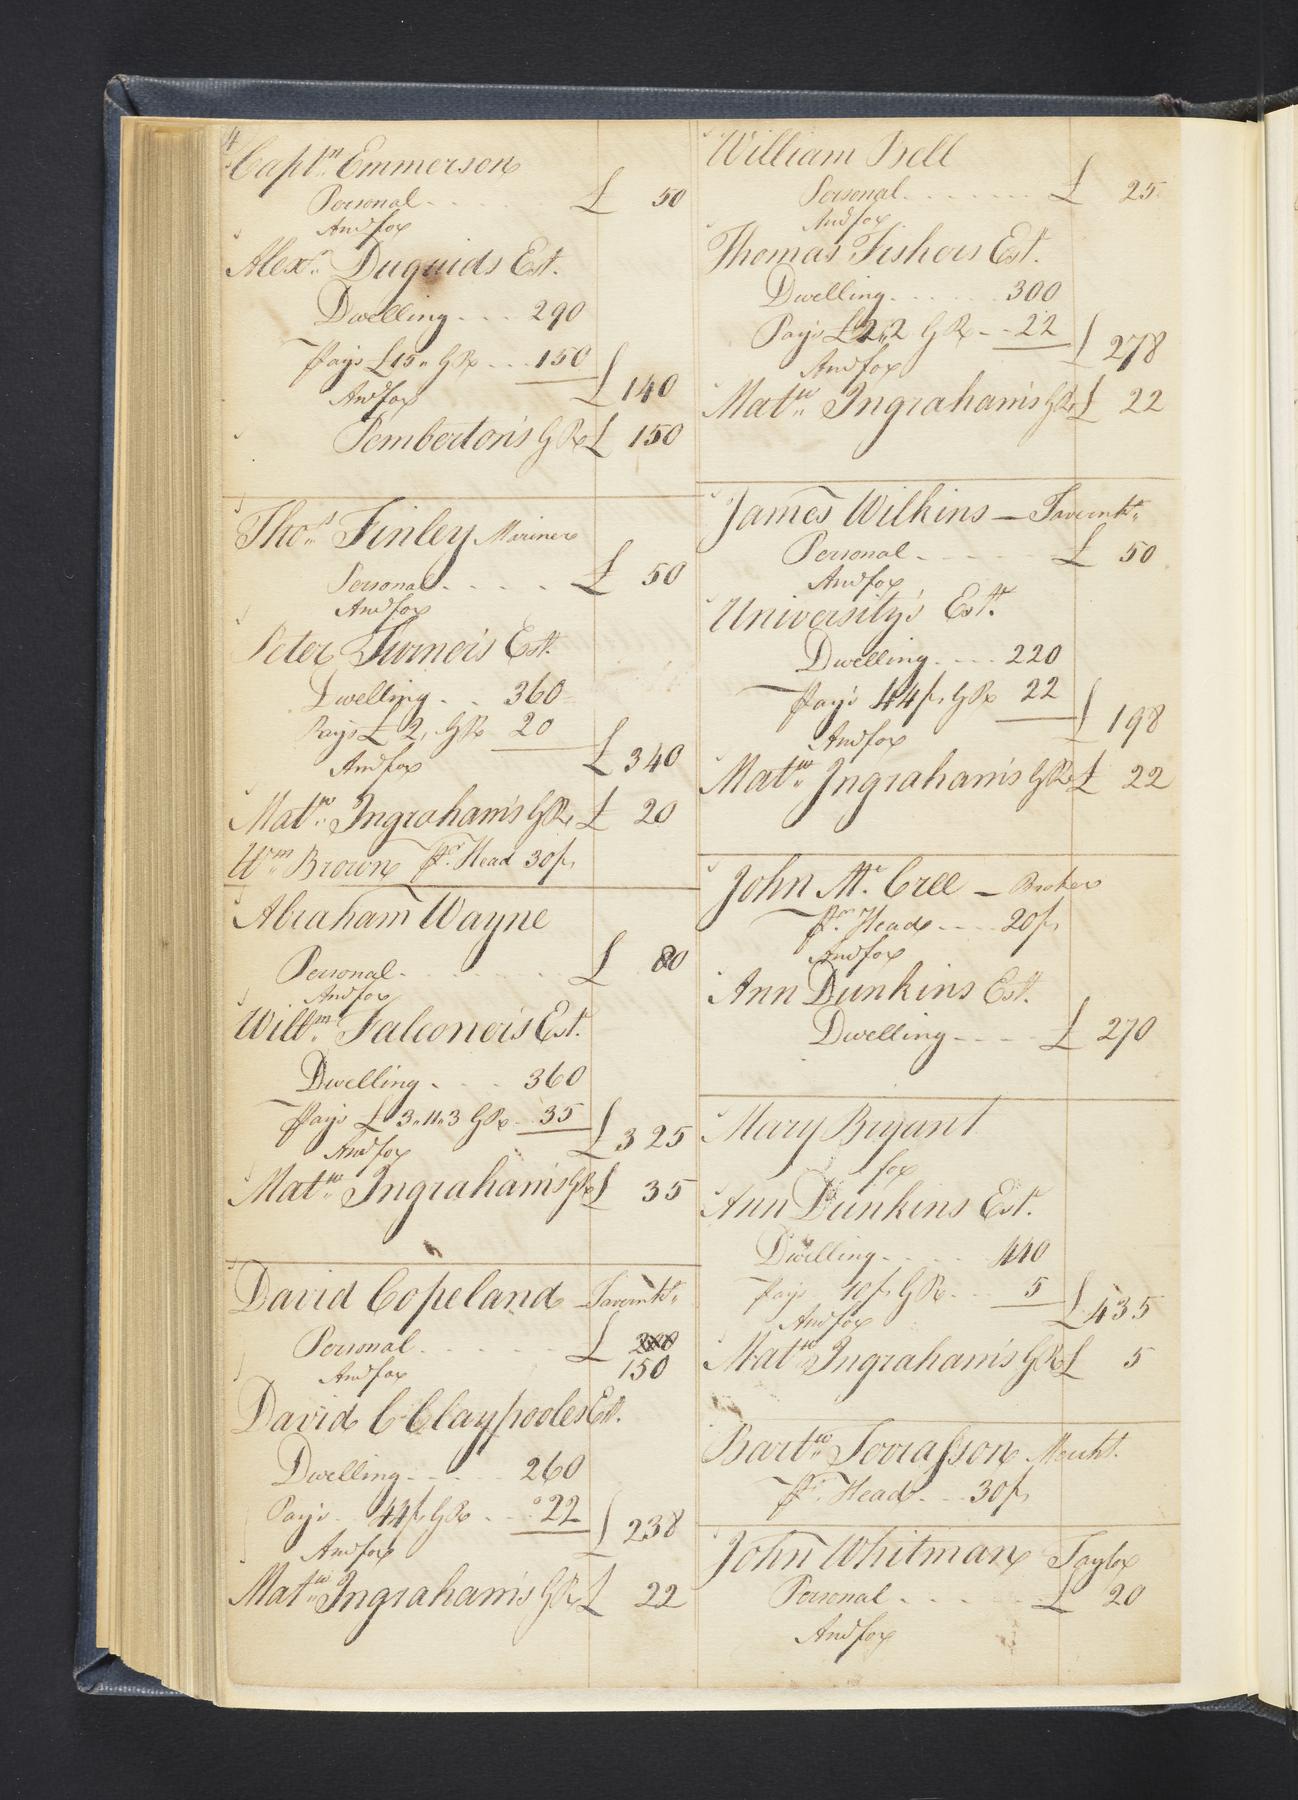 4
Captn. Emmerson
Personal £ 50
And for
Alexr. Duguids Est.
Dwelling 290
Pays £15 " GR 150 £ 140
And for
Pemberton's GR £ 150
Thos. Finley Mariner
Personal £ 50
And for
Peter Turner's Est.
Dwelling 360
Pays £ 2, GR 20 £ 340
And for
Matw. Ingraham's GR, £ 20
Wm. Brown Pr. Head 30/,
Abraham Wayne
Personal £ 80
And for
Willm. Falconer's Est.
Dwelling 360
Pays £ 3.11.3 GR 35 £ 325
And for
Matw. Ingraham's GR £ 35
David Copeland Tavernkr.
Personal £ 200
150
And for
David C Claypooles Est.
Dwelling 260
Pays 44/, GR 22 £ 238
And for
Matw. Ingraham's GR £ 22
William Bell
Personal £ 25
And for
Thomas Fishers Est.
Dwelling 300
Pays £2,,2 GR 22 £ 278
And for
Matw. Ingraham's GR £ 22
James Wilkins — Tavernkr.
Personal £ 50
And for
University's Estr.
Dwelling 220
Pays 44/, GR 22 £ 198
And for
Matw. Ingraham's GR £ 22
John Mc. Cree — Broker
Pr. Head 20/,
And for
Ann Dunkins Est.
Dwelling £ 270
Mary Bryant
for
Ann Dunkins Est.
Dwelling 440
Pays 10/, GR 5 £ 435
And for
Matw. Ingraham's GR £ 5
Bartw. Terrasson Mercht.
Pr. Head 30/,
John Whitman Taylor
Personal £ 20
And for